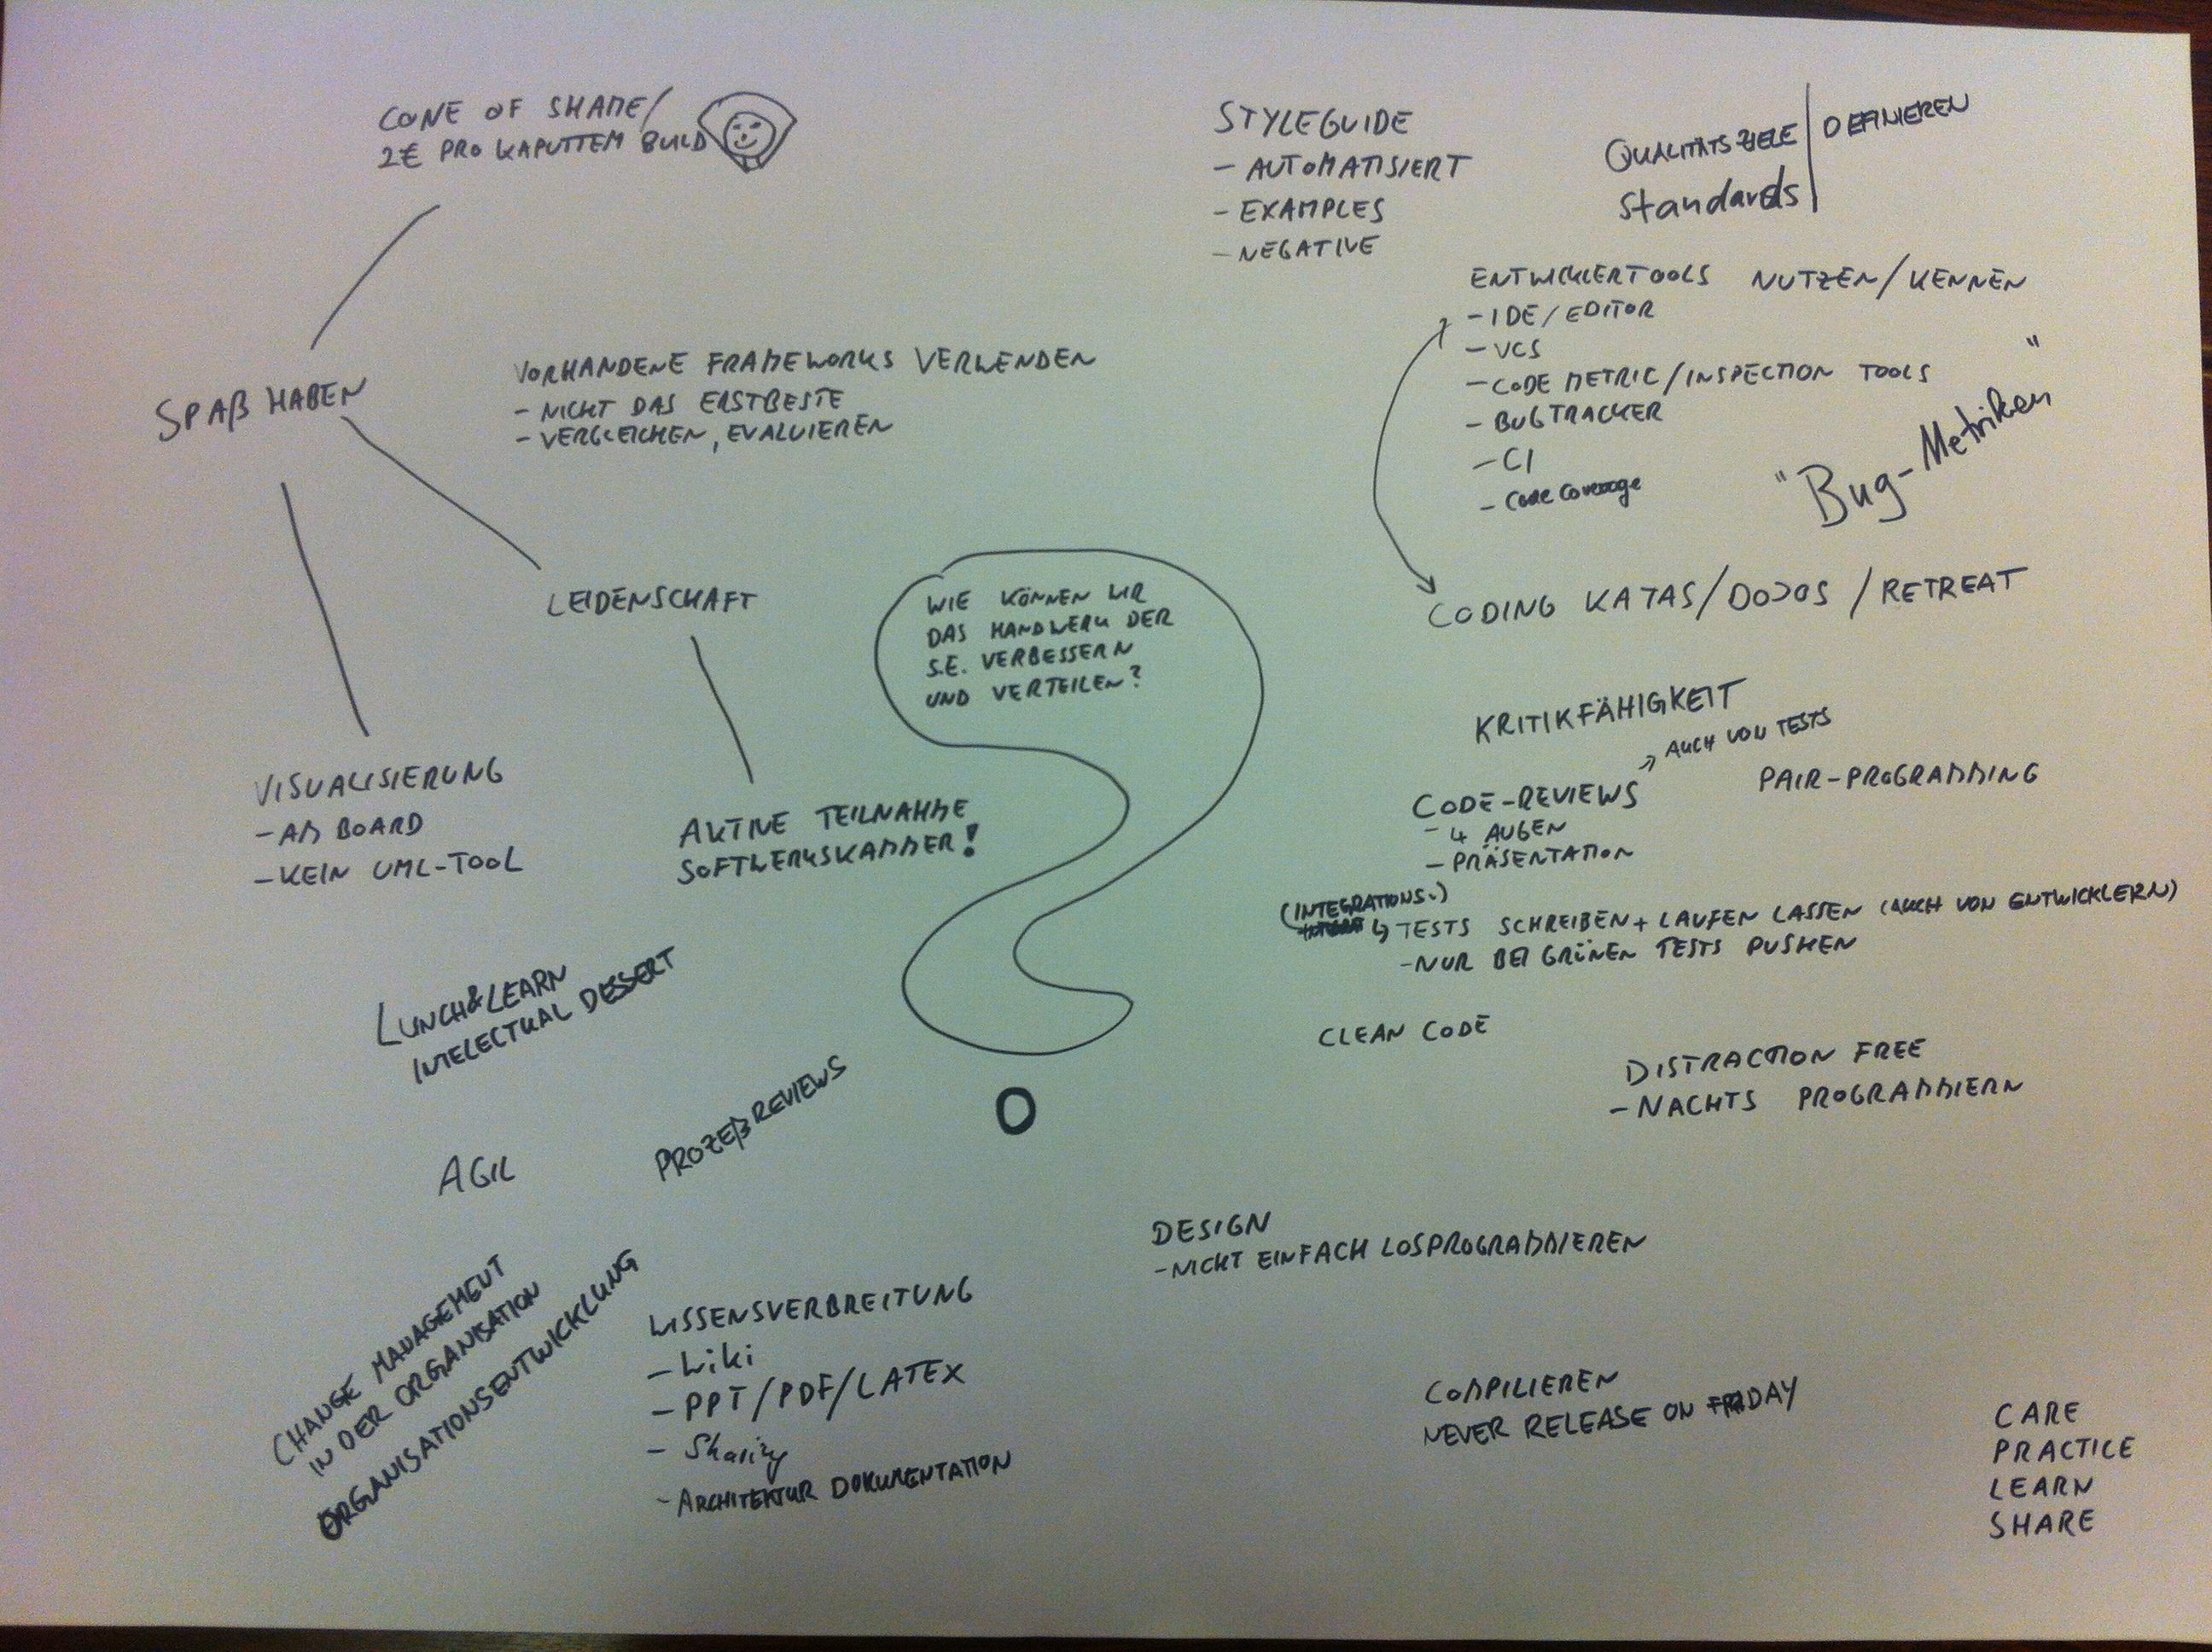 CONE OF SHAME/
2€ PRO KAPUTTEM BUILD
SPAß HABEN
VORHANDENE FRAMEWORKS VERWENDEN
- NICHT DAS ERSTBESTE
- VERGLEICHEN, EVALUIEREN
LEIDENSCHAFT
VISUALISIERUNG
- AM BOARD
- KEIN UML-TOOL
AKTIVE TEILNAHME
SOFTWERKSKAMMER!
WIE KÖNNEN WIR
DAS HANDWERK DER
S.E. VERBESSERN
UND VERTEILEN?
STYLEGUIDE
- AUTOMATISIERT
- EXAMPLES
- NEGATIVE
QUALITÄTSZIELE / DEFINIEREN
Standards
ENTWICKLERTOOLS NUTZEN/KENNEN
- IDE/EDITOR
- VCS
- CODE METRIC/INSPECTION TOOLS
- BUGTRACKER
- CI
- Code Coverage
"Bug-Metriken"
CODING KATAS/DOJOS/RETREAT
KRITIKFÄHIGKEIT
AUCH VON TESTS
CODE-REVIEWS
- 4 AUGEN
- PRÄSENTATION
PAIR-PROGRAMMING
(INTEGRATIONS-)
TESTS SCHREIBEN + LAUFEN LASSEN (AUCH VON ENTWICKLERN)
- NUR BEI GRÜNEN TESTS PUSHEN
CLEAN CODE
DISTRACTION FREE
- NACHTS PROGRAMMIERN
LUNCH&LEARN
INTELECTUAL DESSERT
PROZEßREVIEWS
AGIL
CHANGE MANAGEMENT
IN DER ORGANISATION
ORGANISATIONSENTWICKLUNG
WISSENSVERBREITUNG
- Wiki
- PPT/PDF/LATEX
- Sharing
- ARCHITEKTUR DOKUMENTATION
DESIGN
- NICHT EINFACH LOSPROGRAMMIEREN
COMPILIEREN
NEVER RELEASE ON FRIDAY
CARE
PRACTICE
LEARN
SHARE